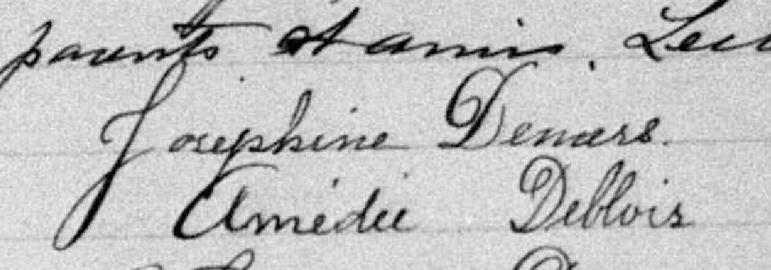 parents et amis. Lec
Josephine Demers.
Amédée Deblois